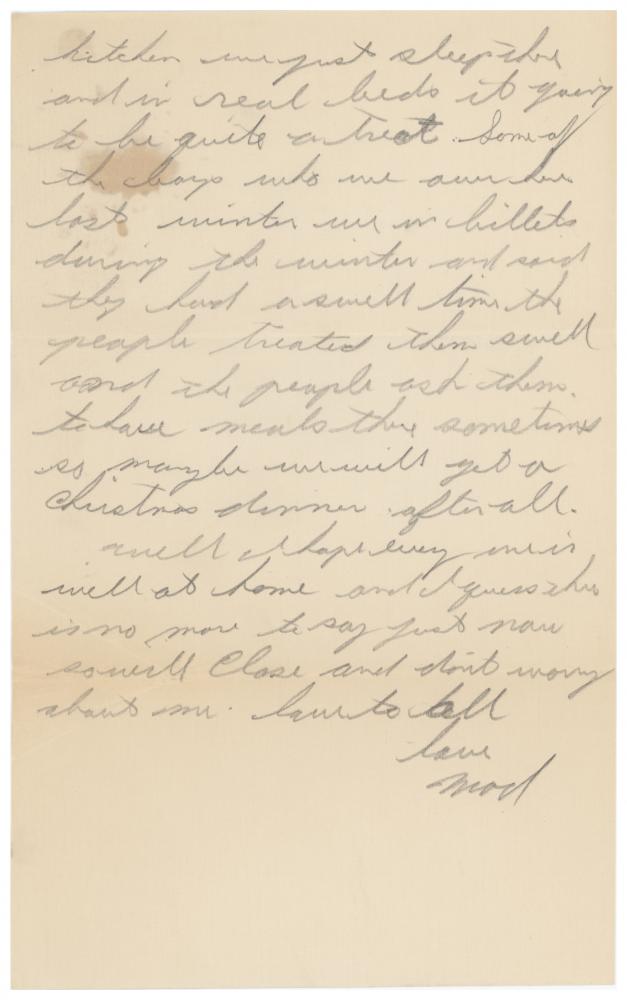 kitchen we just sleep there
and in real beds it going
to be quite a treat. Some of
the boys who we over here
last winter we in billets
during the winter and said
they had a swell time the
people treated them swell
and the people ask them
to have meals there sometimes
so maybe we will get a
Christmas dinner after all.
well I hope every one is
well at home and I guess there
is no more to say just now
so will Close and dont worry
about me. love to all
love